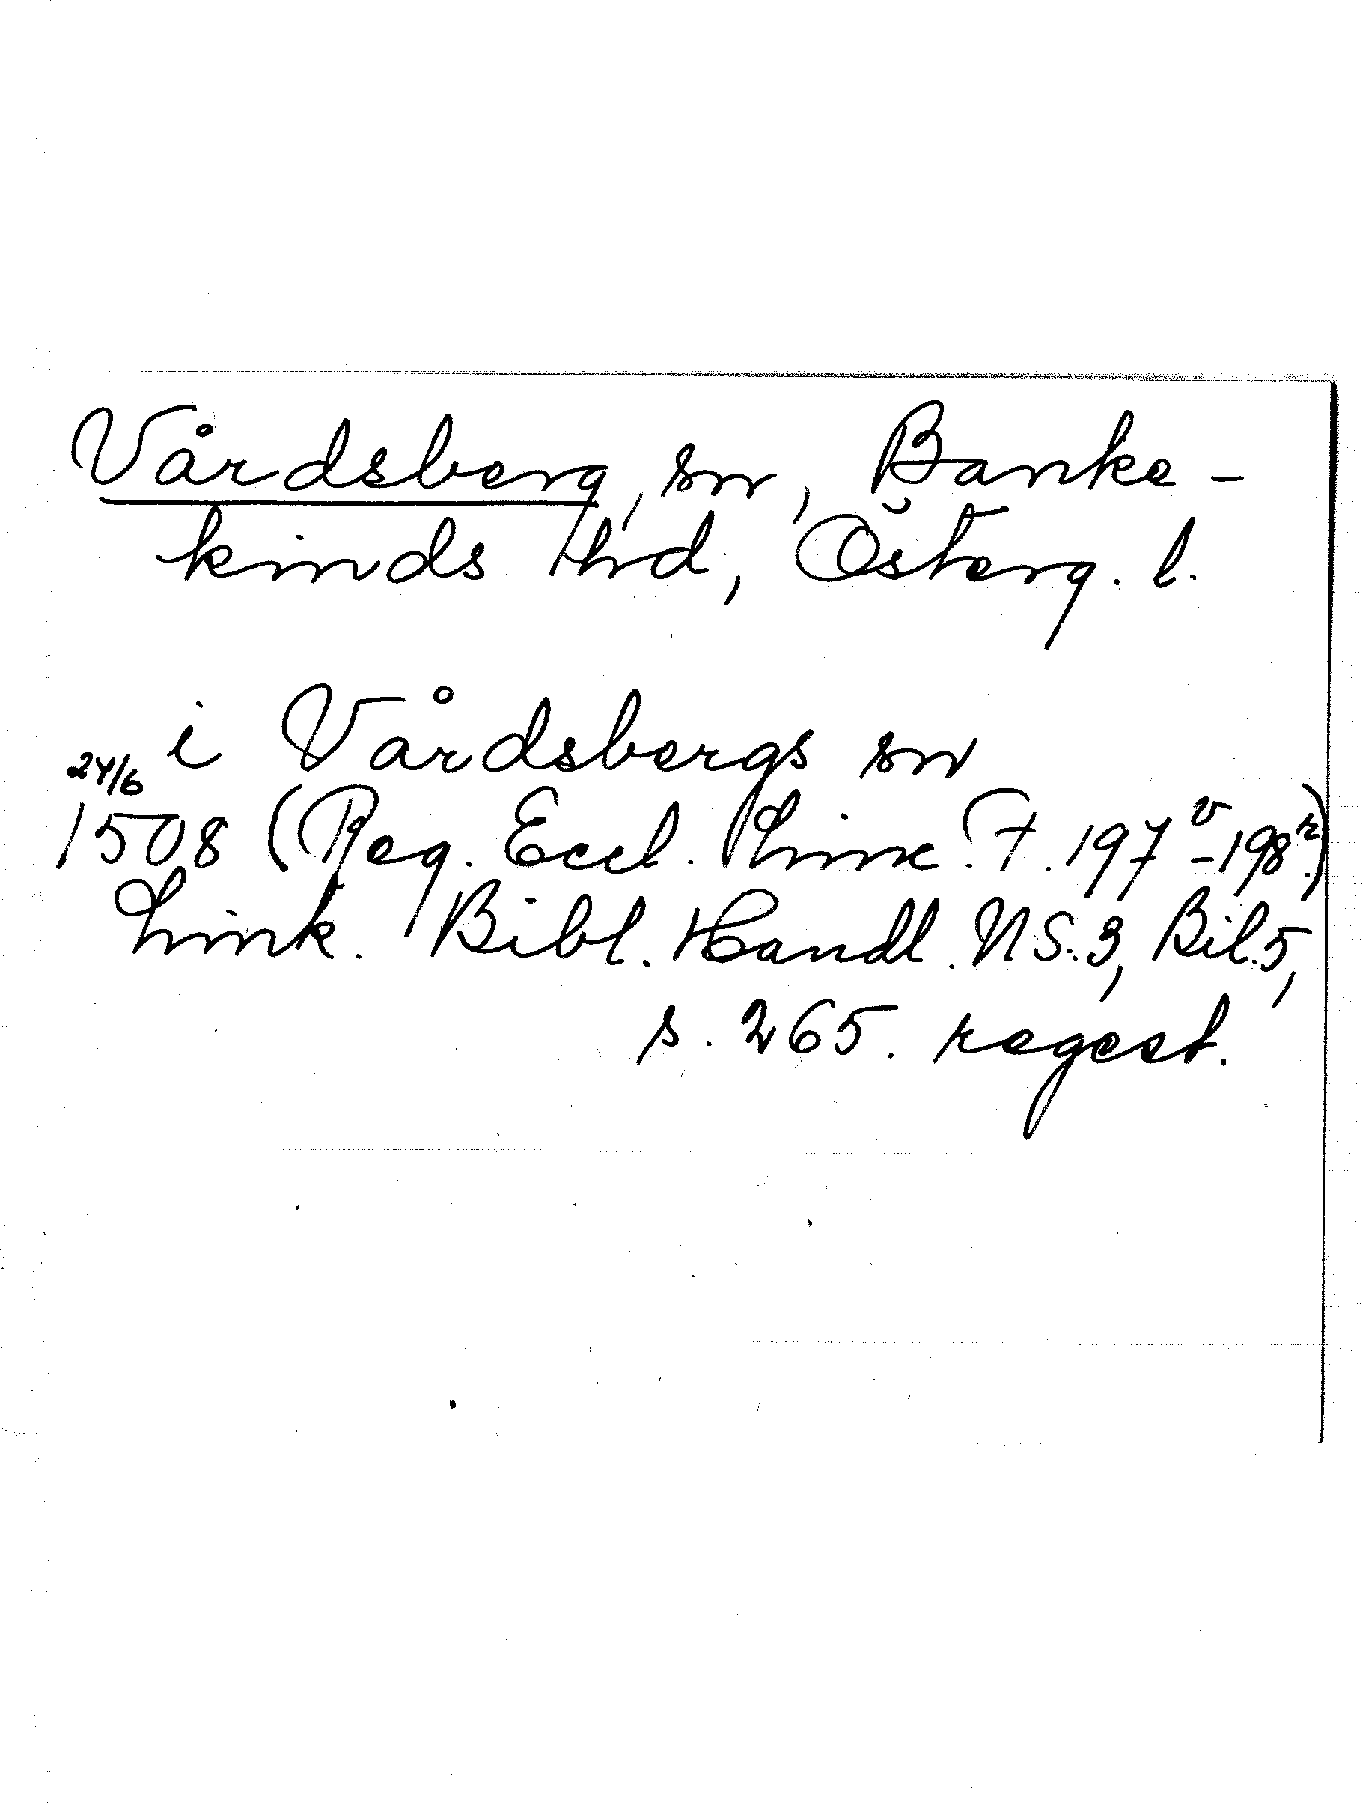 Vårdsberg, sn, Banke-
kinds hd, Österg. l.
i Vårdsbergs sn
24/6
1508 (Reg. Eccl. Linc. f. 197v-198r)
Link. Bibl. Handl. NS.3, Bil.5,
s. 265. regest.